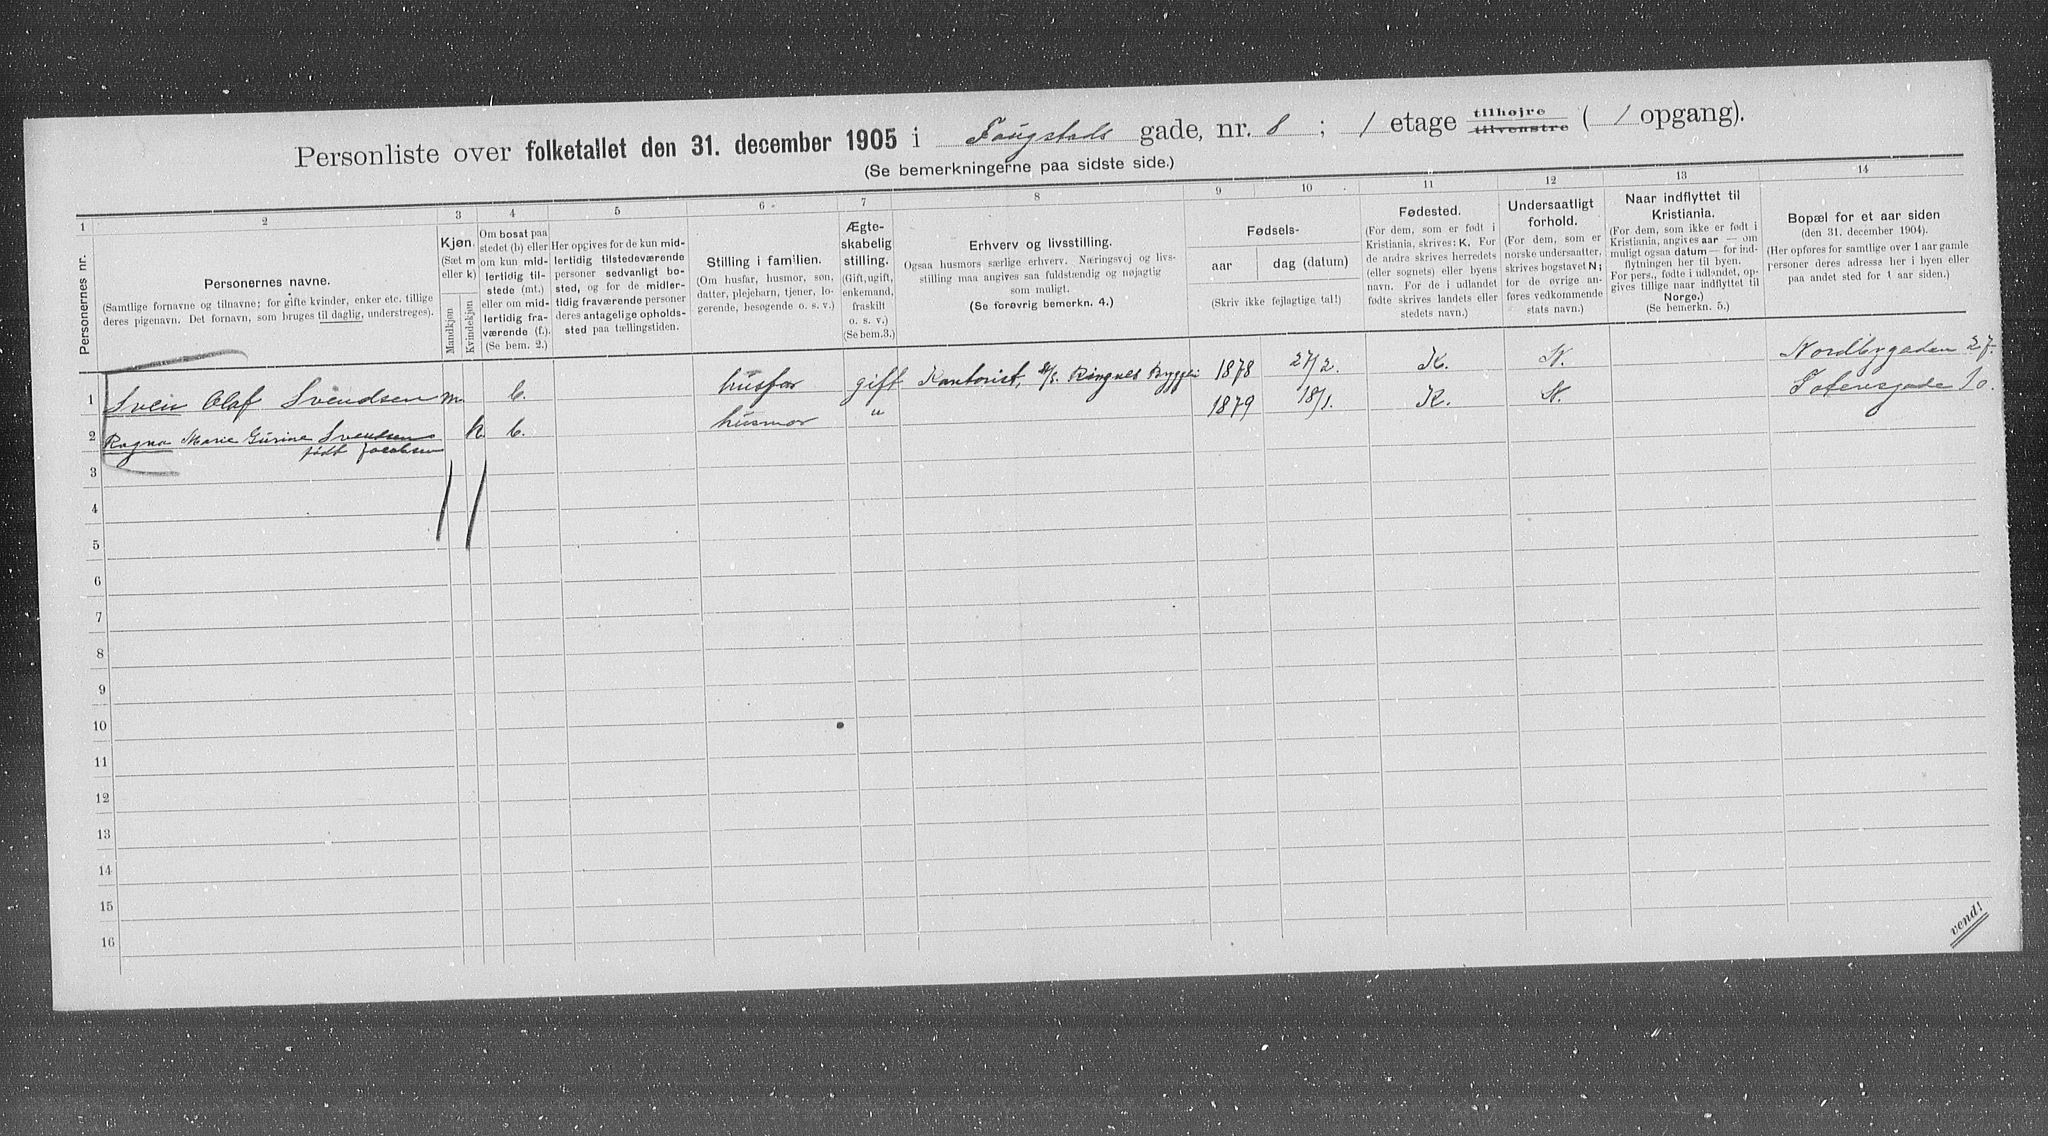 Personliste over folketallet den 31. december 1905 i Faugstads gade, nr. 8; 1 etage tilhøjre tilvenstre (1 opgang).
(Se bemerkningerne paa sidste side.)
1 2 3 4 5 6 7 8 9 10 11 12 13 14
Personernes nr.
Personernes navne.
(Samtlige fornavne og tilnavne; for gifte kvinder, enker etc. tillige
deres pigenavn. Det fornavn, som bruges til daglig, understreges).
Kjøn.
(Sæt m
eller k)
Mandkjøn
Kvindekjøn
Om bosat paa
stedet (b) eller
om kun mid-
lertidig til-
stede (mt.)
eller om mid-
lertidig fra-
værende (f.).
(Se bem. 2.)
Her opgives for de kun mid-
lertidig tilstedeværende
personer sedvanligt bo-
sted, og for de midler-
tidig fraværende personer
deres antagelige opholds-
sted paa tællingstiden.
Stilling i familien.
(Om husfar, husmor, søn,
datter, plejebarn, tjener, lo-
gerende, besøgende o. s. v.)
Ægte-
skabelig
stilling.
(Gift, ugift,
enkemand,
fraskilt
o. s. v.)
(Se bem.3.)
Erhverv og livsstilling.
Ogsaa husmors særlige erhverv. Næringsvej og livs-
stilling maa angives saa fuldstændig og nøjagtig
som muligt.
(Se forøvrig bemerkn. 4.)
Fødsels-
aar dag (datum)
(Skriv ikke fejlagtige tal!)
Fødested.
(For dem, som er født i
Kristiania, skrives: K. For
de andre skrives herredets
(eller sognets) eller byens
navn. For de i udlandet
fødte skrives landets eller
stedets navn.)
Undersaatligt
forhold.
(For dem, som er
norske undersaatter,
skrives bogstavet N;
for de øvrige an-
føres vedkommende
stats navn.)
Naar indflyttet til
Kristiania.
(For dem, som ikke er født i
Kristiania, angives aar — om
muligt ogsaa datum — for ind-
flytningen her til byen.
For pers., fødte i udlandet, op-
gives tillige naar indflyttet til
Norge.)
(Se bemerkn. 5.)
Bopæl for et aar siden
(den 31. december 1904).
(Her opføres for samtlige over 1 aar gamle
personer deres adresse her i byen eller
paa andet sted for 1 aar siden.)
1 Svein Olaf Svendsen m. b. husfar gift Kontorist, Ringnes Bryggeri 1878 27/2. K. N. Nordbygaden 27.
2 Ragna Marie Gurine Svendsen k. b. husmor " 1879 18/1. K. N. Tøiensgade 10.
født Jacobsen
3
4
5
6
7
8
9
10
11
12
13
14
15
16
vend!